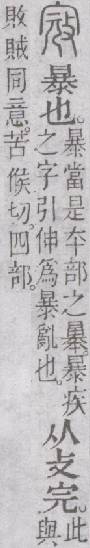 寇 暴也。暴當是夲部之㬥。㬥疾之字引伸爲暴亂也。从攴完。此與
敗賊同意。苦候切。四部。